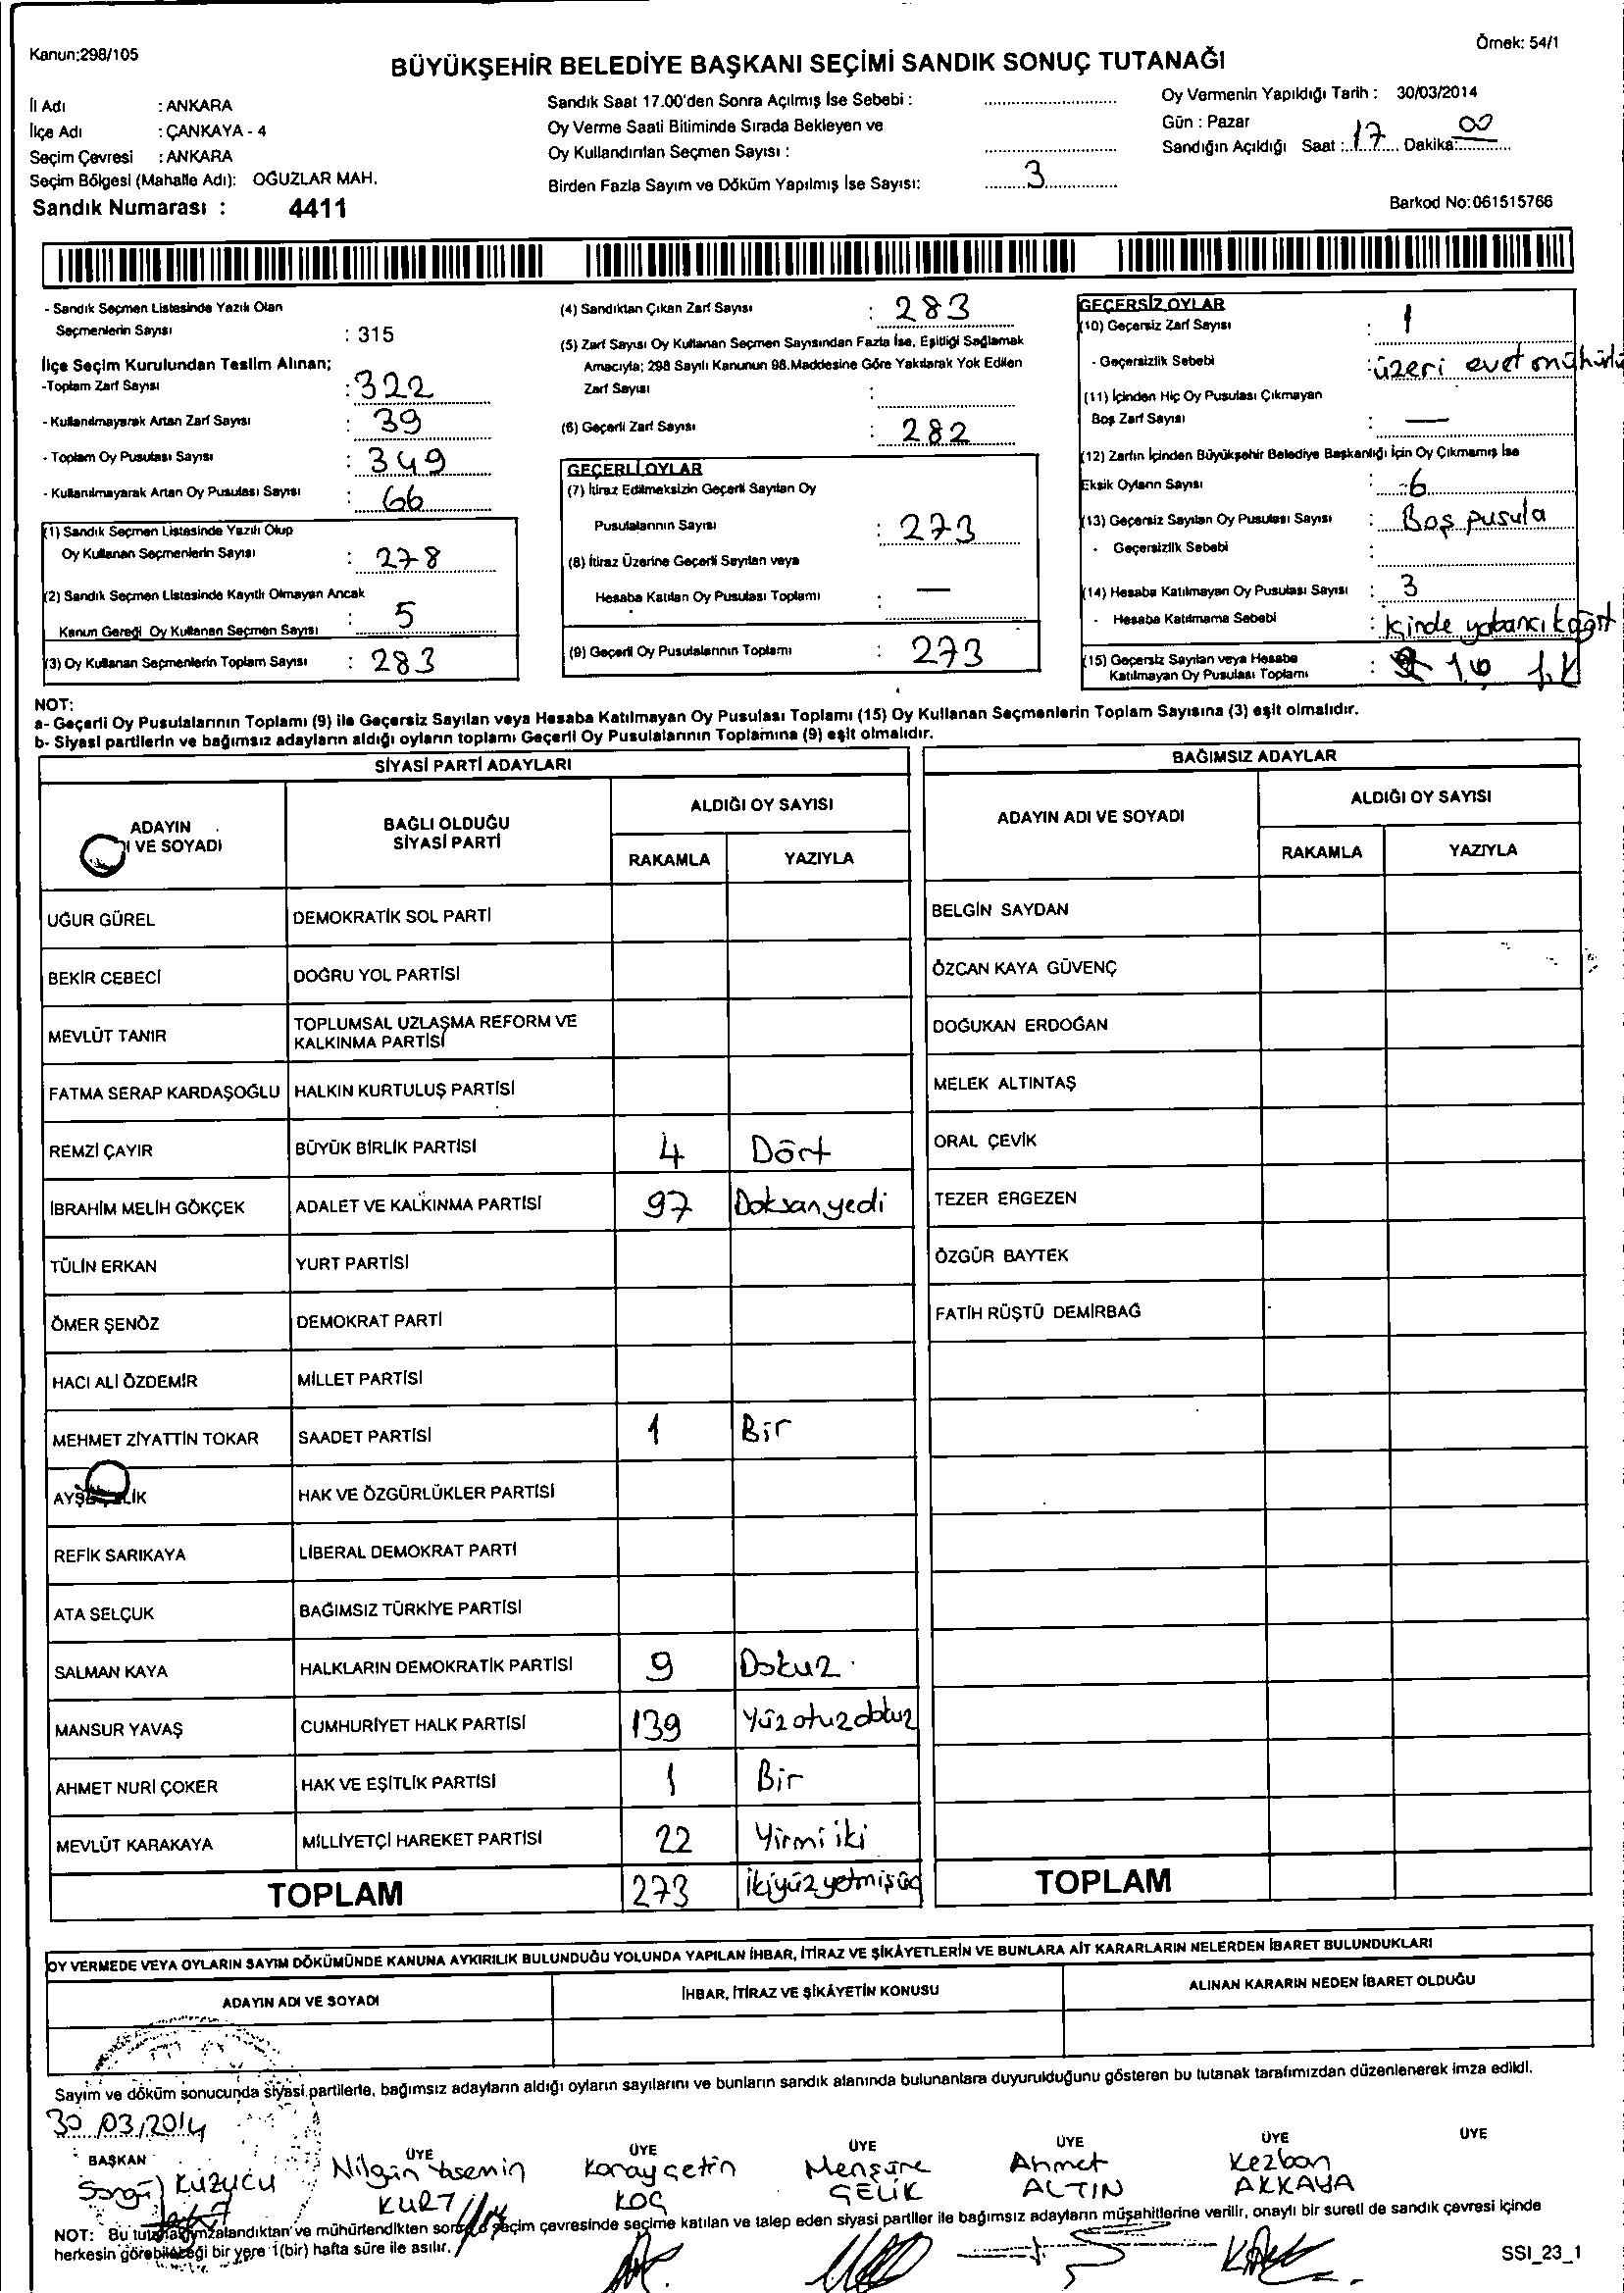 Kanun:298/105
Örnek: 54/1
BÜYÜKŞEHİR BELEDİYE BAŞKANI SEÇİMİ SANDIK SONUÇ TUTANAĞI
İl Adı : ANKARA
İlçe Adı : ÇANKAYA - 4
Seçim Çevresi : ANKARA
Seçim Bölgesi (Mahalle Adı): OĞUZLAR MAH.
Sandık Numarası : 4411
Sandık Saat 17.00'den Sonra Açılmış İse Sebebi :
Oy Verme Saati Bitiminde Sırada Bekleyen ve
Oy Kullandırılan Seçmen Sayısı :
Birden Fazla Sayım ve Döküm Yapılmış İse Sayısı: 3
Oy Vermenin Yapıldığı Tarih : 30/03/2014
Gün : Pazar
Sandığın Açıldığı Saat : 17 Dakika: 00
Barkod No:061515766
- Sandık Seçmen Listesinde Yazılı Olan
Seçmenlerin Sayısı : 315
İlçe Seçim Kurulundan Teslim Alınan;
-Toplam Zarf Sayısı : 322
- Kullanılmayarak Artan Zarf Sayısı : 39
- Toplam Oy Pusulası Sayısı : 349
- Kullanılmayarak Artan Oy Pusulası Sayısı : 66
(1) Sandık Seçmen Listesinde Yazılı Olup
Oy Kullanan Seçmenlerin Sayısı : 278
(2) Sandık Seçmen Listesinde Kayıtlı Olmayan Ancak
Kanun Gereği Oy Kullanan Seçmen Sayısı : 5
(3) Oy Kullanan Seçmenlerin Toplam Sayısı : 283
(4) Sandıktan Çıkan Zarf Sayısı : 283
(5) Zarf Sayısı Oy Kullanan Seçmen Sayısından Fazla İse, Eşitliği Sağlamak
Amacıyla; 298 Sayılı Kanunun 98.Maddesine Göre Yakılarak Yok Edilen
Zarf Sayısı :
(6) Geçerli Zarf Sayısı : 282
GEÇERLİ OYLAR
(7) İtiraz Edilmeksizin Geçerli Sayılan Oy
Pusulalarının Sayısı : 273
(8) İtiraz Üzerine Geçerli Sayılan veya
Hesaba Katılan Oy Pusulası Toplamı : —
(9) Geçerli Oy Pusulalarının Toplamı : 273
GEÇERSİZ OYLAR
(10) Geçersiz Zarf Sayısı : 1
- Geçersizlik Sebebi : üzeri evet mühürlü
(11) İçinden Hiç Oy Pusulası Çıkmayan
Boş Zarf Sayısı : —
(12) Zarfın İçinden Büyükşehir Belediye Başkanlığı İçin Oy Çıkmamış İse
Eksik Oyların Sayısı : 6
(13) Geçersiz Sayılan Oy Pusulası Sayısı : Boş pusula
- Geçersizlik Sebebi :
(14) Hesaba Katılmayan Oy Pusulası Sayısı : 3
- Hesaba Katılmama Sebebi : içinde yabancı kağıt
(15) Geçersiz Sayılan veya Hesaba
Katılmayan Oy Pusulası Toplamı : 10
NOT:
a- Geçerli Oy Pusulalarının Toplamı (9) ile Geçersiz Sayılan veya Hesaba Katılmayan Oy Pusulası Toplamı (15) Oy Kullanan Seçmenlerin Toplam Sayısına (3) eşit olmalıdır.
b- Siyasi partilerin ve bağımsız adayların aldığı oyların toplamı Geçerli Oy Pusulalarının Toplamına (9) eşit olmalıdır.
SİYASİ PARTİ ADAYLARI
ADAYIN
I VE SOYADI
BAĞLI OLDUĞU
SİYASİ PARTİ
ALDIĞI OY SAYISI
RAKAMLA YAZIYLA
UĞUR GÜREL DEMOKRATİK SOL PARTİ
BEKİR CEBECİ DOĞRU YOL PARTİSİ
MEVLÜT TANIR TOPLUMSAL UZLAŞMA REFORM VE
KALKINMA PARTİSİ
FATMA SERAP KARDAŞOĞLU HALKIN KURTULUŞ PARTİSİ
REMZİ ÇAYIR BÜYÜK BİRLİK PARTİSİ 4 Dört
İBRAHİM MELİH GÖKÇEK ADALET VE KALKINMA PARTİSİ 97 Doksanyedi
TÜLİN ERKAN YURT PARTİSİ
ÖMER ŞENÖZ DEMOKRAT PARTİ
HACI ALİ ÖZDEMİR MİLLET PARTİSİ
MEHMET ZİYATTİN TOKAR SAADET PARTİSİ 1 Bir
HAK VE ÖZGÜRLÜKLER PARTİSİ
REFİK SARIKAYA LİBERAL DEMOKRAT PARTİ
ATA SELÇUK BAĞIMSIZ TÜRKİYE PARTİSİ
SALMAN KAYA HALKLARIN DEMOKRATİK PARTİSİ 9 Dokuz
MANSUR YAVAŞ CUMHURİYET HALK PARTİSİ 139 Yüzotuzdokuz
AHMET NURİ ÇOKER HAK VE EŞİTLİK PARTİSİ 1 Bir
MEVLÜT KARAKAYA MİLLİYETÇİ HAREKET PARTİSİ 22 Yirmi iki
TOPLAM 273 ikiyüzyetmişüç
BAĞIMSIZ ADAYLAR
ADAYIN ADI VE SOYADI
ALDIĞI OY SAYISI
RAKAMLA YAZIYLA
BELGİN SAYDAN
ÖZCAN KAYA GÜVENÇ
DOĞUKAN ERDOĞAN
MELEK ALTINTAŞ
ORAL ÇEVİK
TEZER ERGEZEN
ÖZGÜR BAYTEK
FATİH RÜŞTÜ DEMİRBAĞ
TOPLAM
OY VERMEDE VEYA OYLARIN SAYIM DÖKÜMÜNDE KANUNA AYKIRILIK BULUNDUĞU YOLUNDA YAPILAN İHBAR, İTİRAZ VE ŞİKÂYETLERİN VE BUNLARA AİT KARARLARIN NELERDEN İBARET BULUNDUKLARI
ADAYIN ADI VE SOYADI
İHBAR, İTİRAZ VE ŞİKÂYETİN KONUSU
ALINAN KARARIN NEDEN İBARET OLDUĞU
Sayım ve döküm sonucunda siyasi partilerle, bağımsız adayların aldığı oyların sayılarını ve bunların sandık alanında bulunanlara duyurulduğunu gösteren bu tutanak tarafımızdan düzenlenerek imza edildi.
30/03/2014
BAŞKAN ÜYE ÜYE ÜYE ÜYE ÜYE ÜYE
Songül KUZUCU
Nilgün Yasemin
KURT
Koray Çetin
KOÇ
Mensure
ÇELİK
Ahmet
ALTIN
Kezban
AKKAYA
NOT: Bu tutanak imzalandıktan ve mühürlendikten sonra o seçim çevresinde seçime katılan ve talep eden siyasi partiler ile bağımsız adayların müşahitlerine verilir, onaylı bir sureti de sandık çevresi içinde
herkesin görebileceği bir yere 1(bir) hafta süre ile asılır.
SSI_23_1